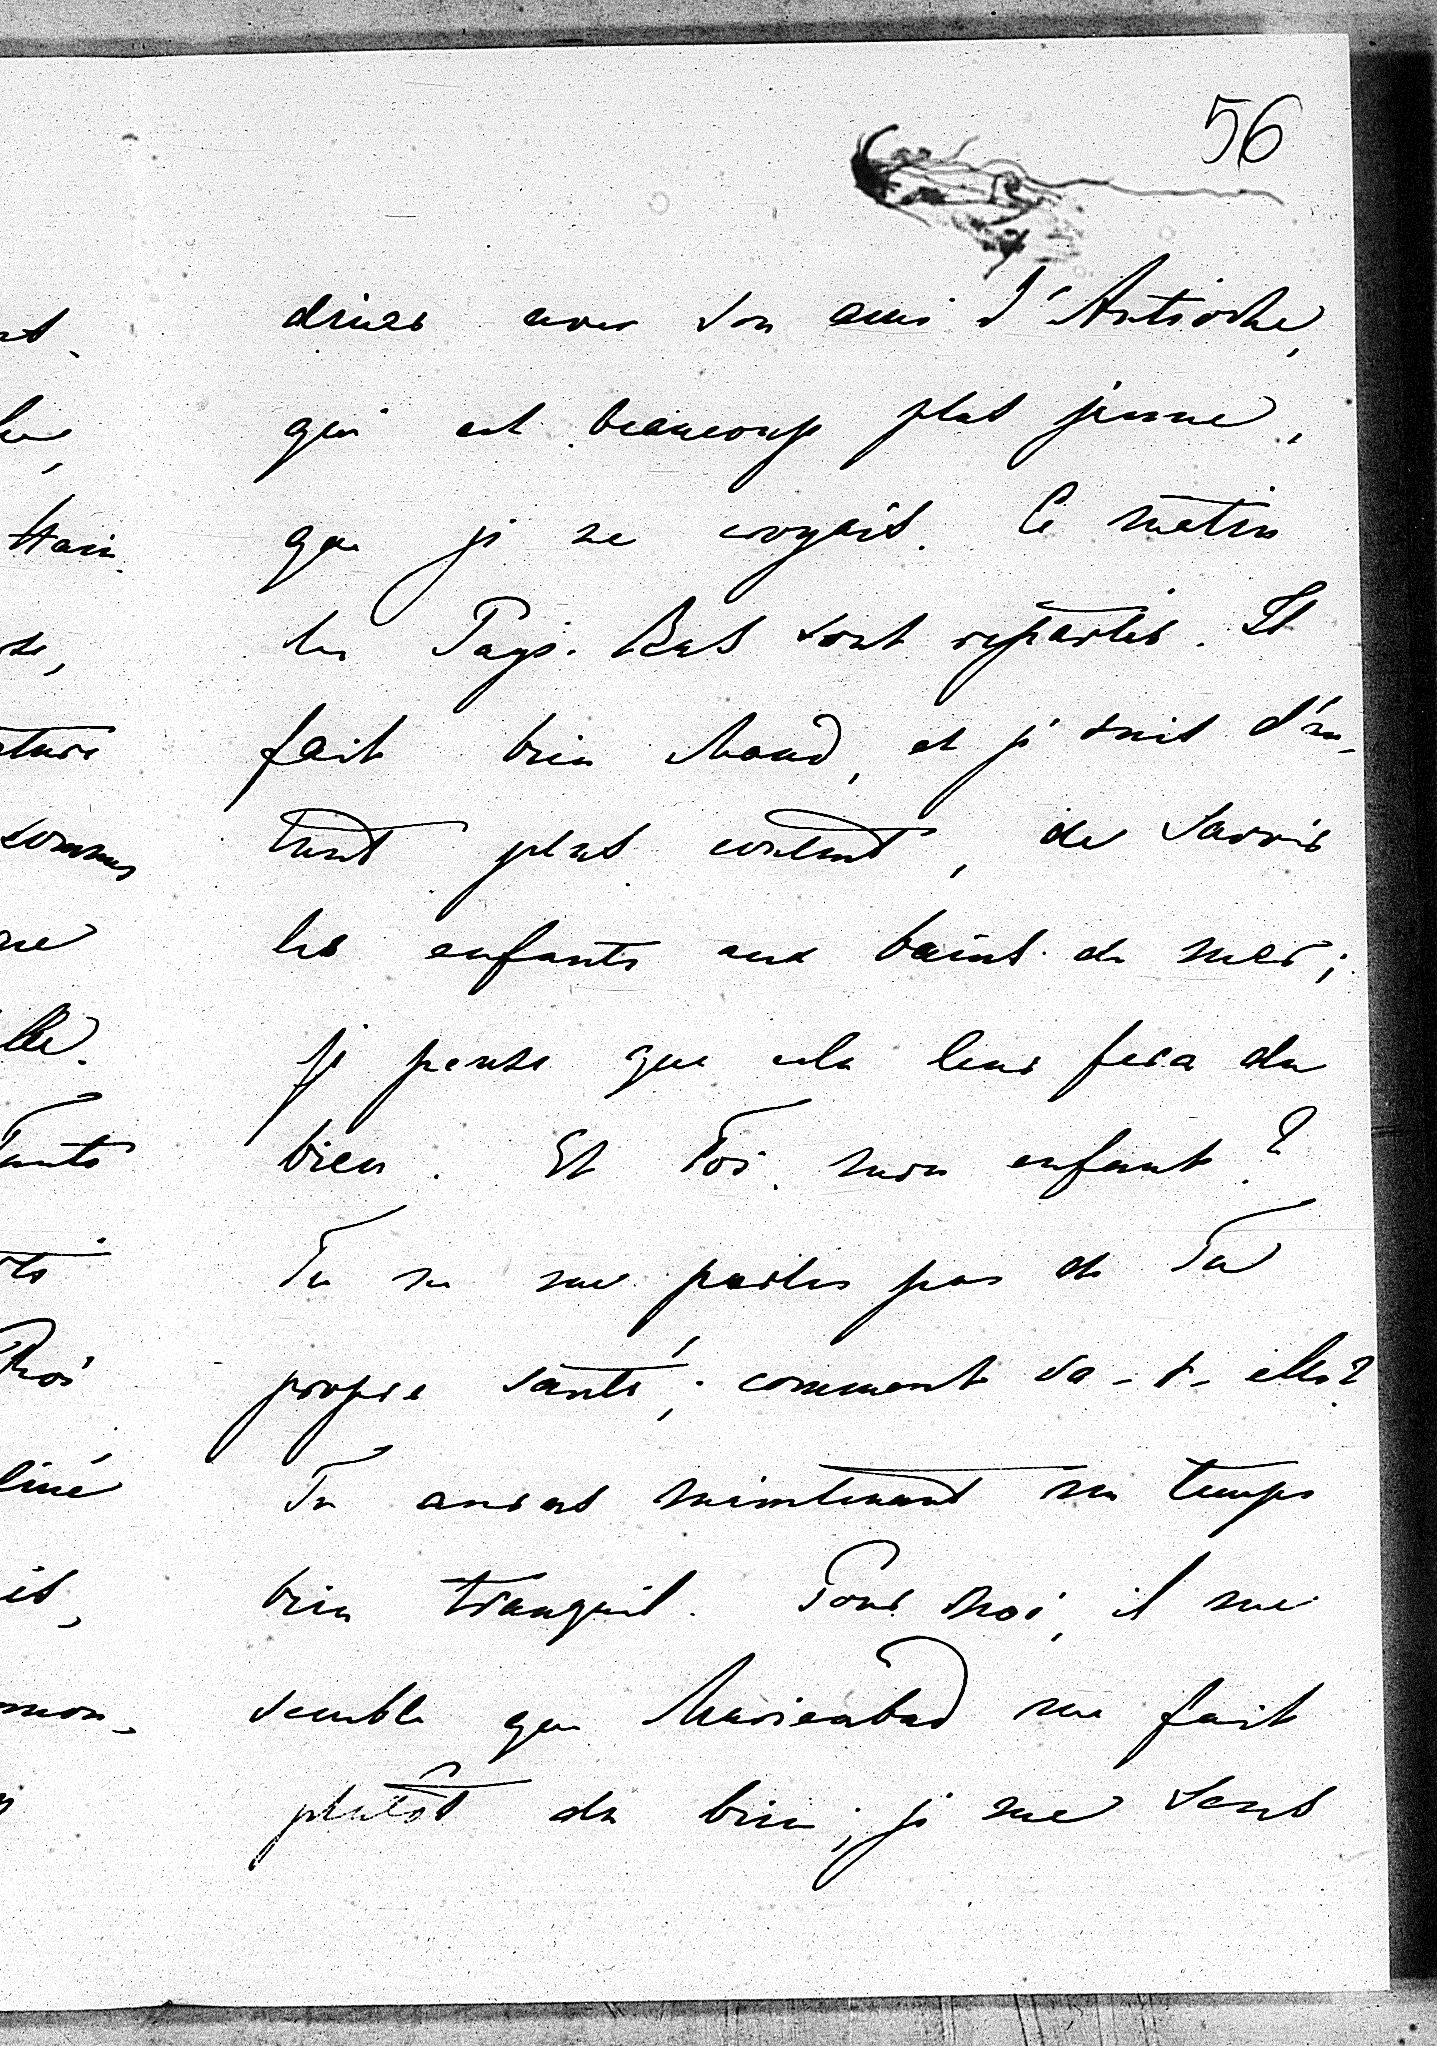 56
diner avec son ami d'Antioche,
qui est beaucoup plus jeune,
que je ne croyais. Ce matin
les Pays-Bas sont repartis. Il
fait bien chaud, et je suis d'au-
tant plus content, de savoir
les enfants aux bains de mer;
je pense que cela leur fera du
bien. Et Toi, mon enfant?
Tu ne me parles pas de Ta
propre santé; comment va-t-elle?
Tu auras maintenant un temps
bien tranquil. Pour moi, il me
semble que Marienbad me fait
plutôt du bien; je me sens